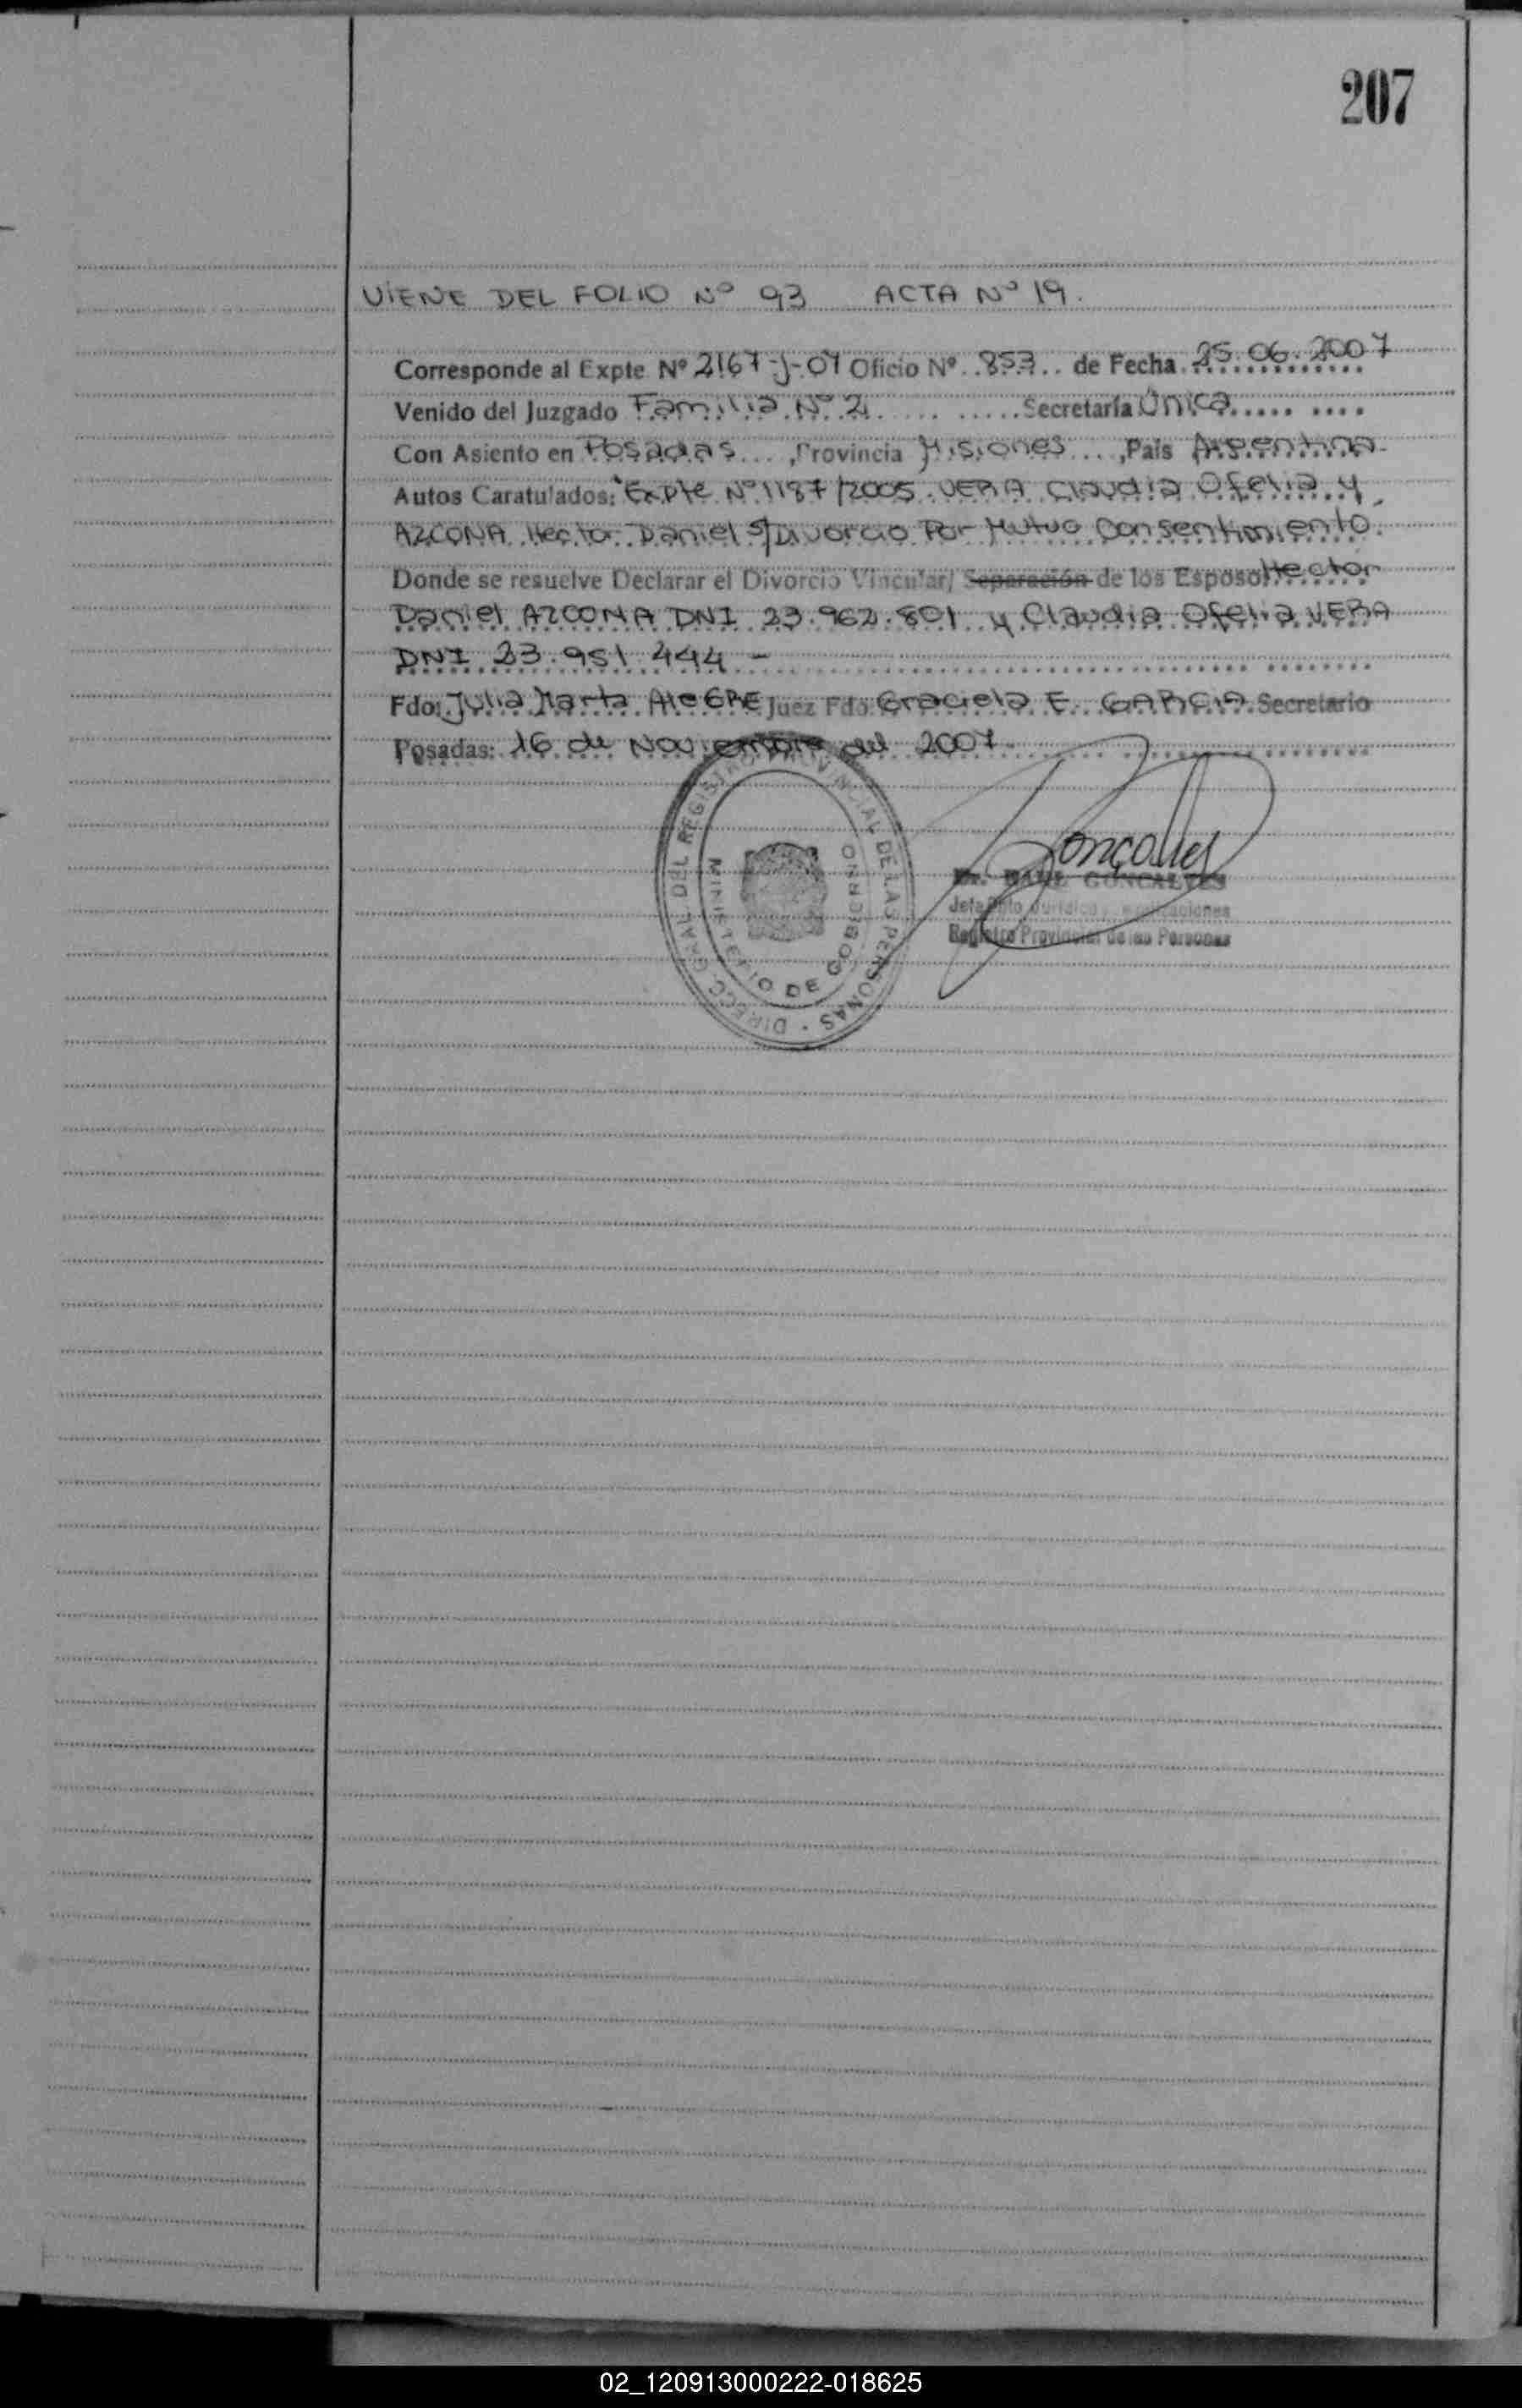 207
VIENE DEL FOLIO Nº 93 ACTA Nº 19.
Corresponde al Expte Nº 2167-J-07 Oficio Nº 853 de Fecha 25.06.2007
Venido del Juzgado Familia Nº 2 Secretaría Única
Con Asiento en Posadas, Provincia Misiones, País Argentina
Autos Caratulados: "Expte Nº 1187/2005 VERA Claudia Ofelia y
AZCONA Hector Daniel S/Divorcio Por Mutuo Consentimiento.
Donde se resuelve Declarar el Divorcio Vincular/ Separación de los Esposo Hector
Daniel AZCONA DNI 23.962.801 y Claudia Ofelia VERA
DNI 23.951.444 -
Fdo: Julia Marta AleGRE Juez Fdo Graciela E. GARCIA Secretario
Posadas: 16 de Noviembre del 2007
DIRECC. GRAL. DEL REGISTRO PROVINCIAL DE LAS PERSONAS
MINISTERIO DE GOBIERNO
Goncalves
Dr. GONCALVES
Jefe Dpto Jurídico y
Registro Provincial de las Personas
02_120913000222-018625